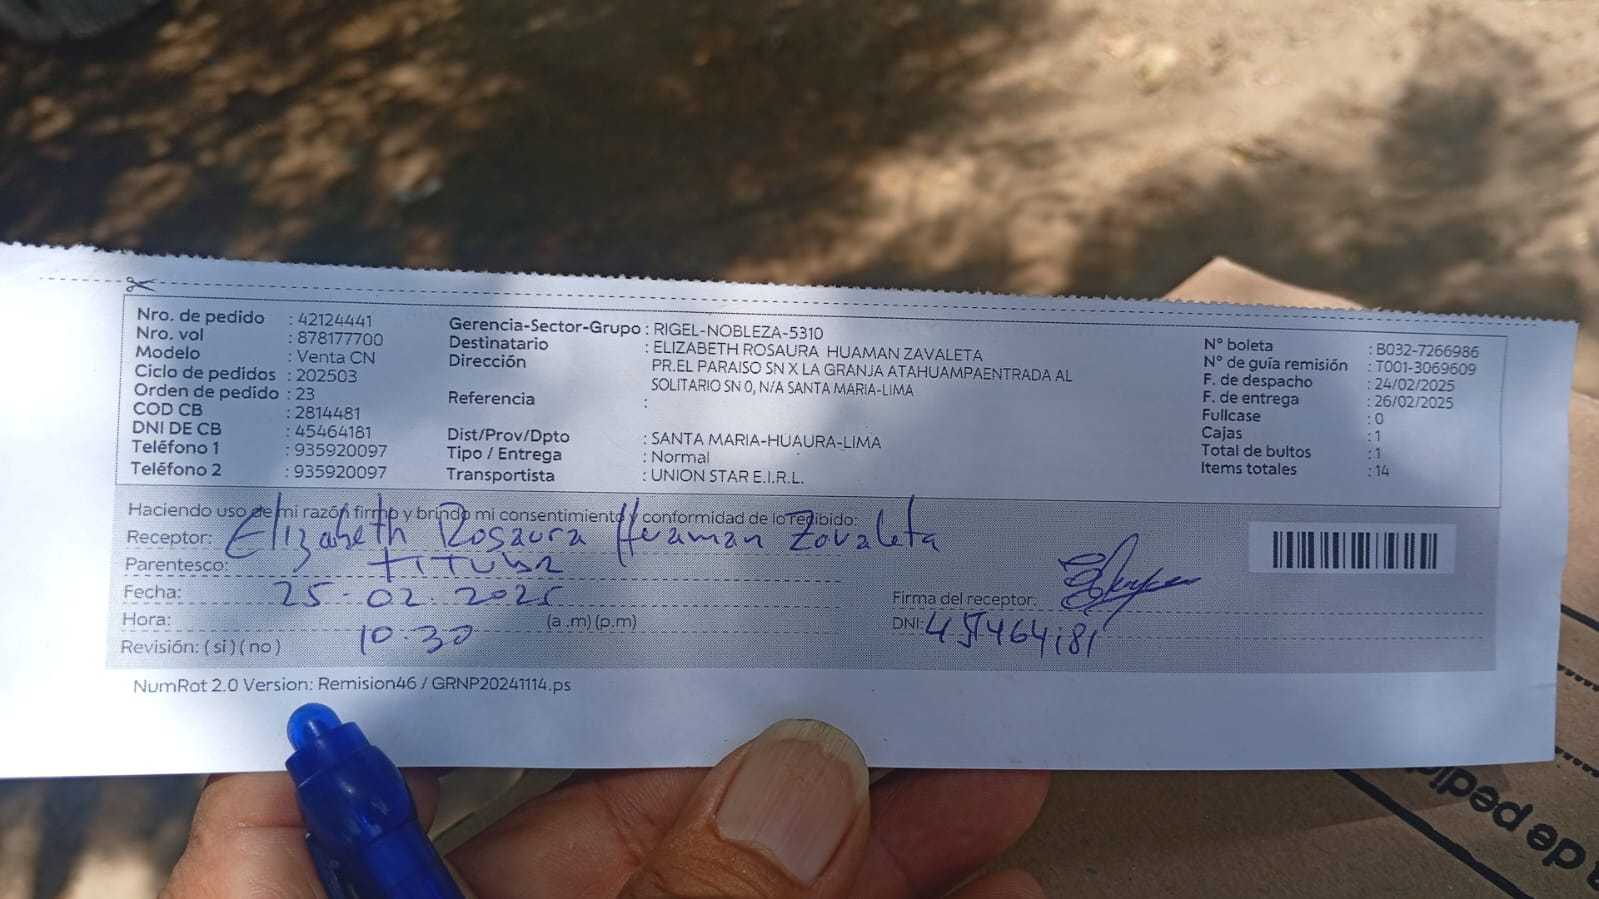 Nro. de pedido : 42124441
Nro. vol : 878177700
Modelo : Venta CN
Ciclo de pedidos : 202503
Orden de pedido : 23
COD CB : 2814481
DNI DE CB : 45464181
Teléfono 1 : 935920097
Teléfono 2 : 935920097
Gerencia-Sector-Grupo : RIGEL-NOBLEZA-5310
Destinatario : ELIZABETH ROSAURA HUAMAN ZAVALETA
Dirección PR.EL PARAISO SN X LA GRANJA ATAHUAMPAENTRADA AL
SOLITARIO SN 0, N/A SANTA MARIA-LIMA
Referencia :
Dist/Prov/Dpto : SANTA MARIA-HUAURA-LIMA
Tipo / Entrega : Normal
Transportista : UNION STAR E.I.R.L.
N° boleta : B032-7266986
N° de guía remisión : T001-3069609
F. de despacho : 24/02/2025
F. de entrega : 26/02/2025
Fullcase : 0
Cajas : 1
Total de bultos : 1
Items totales : 14
Haciendo uso de mi razón firmo y brindo mi consentimiento y conformidad de lo recibido:
Receptor: Elizabeth Rosaura Huaman Zavaleta
Parentesco: TITULAR
Fecha: 25-02-2025
Hora: 10:30 (a .m) (p.m)
Revisión: ( si ) ( no )
Firma del receptor:
DNI: 45464181
NumRot 2.0 Version: Remision46 / GRNP20241114.ps
de pedid